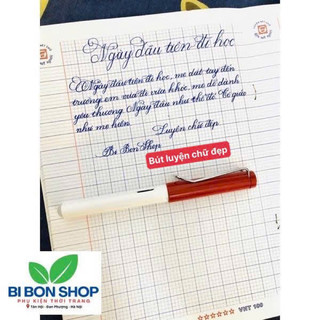 Ngày đầu tiên đi học
Ngày đầu tiên đi học, mẹ dắt tay đến
trường em vừa đi vừa khóc, mẹ dỗ dành
yêu thương. Ngày đầu như thế đó. Cô giáo
như mẹ hiền. Luyện chữ đẹp
Bi Bon Shop
Bút luyện chữ đẹp
BI BON SHOP
PHỤ KIỆN THỜI TRANG
Tân Hội - Đan Phượng - Hà Nội
VHT 100